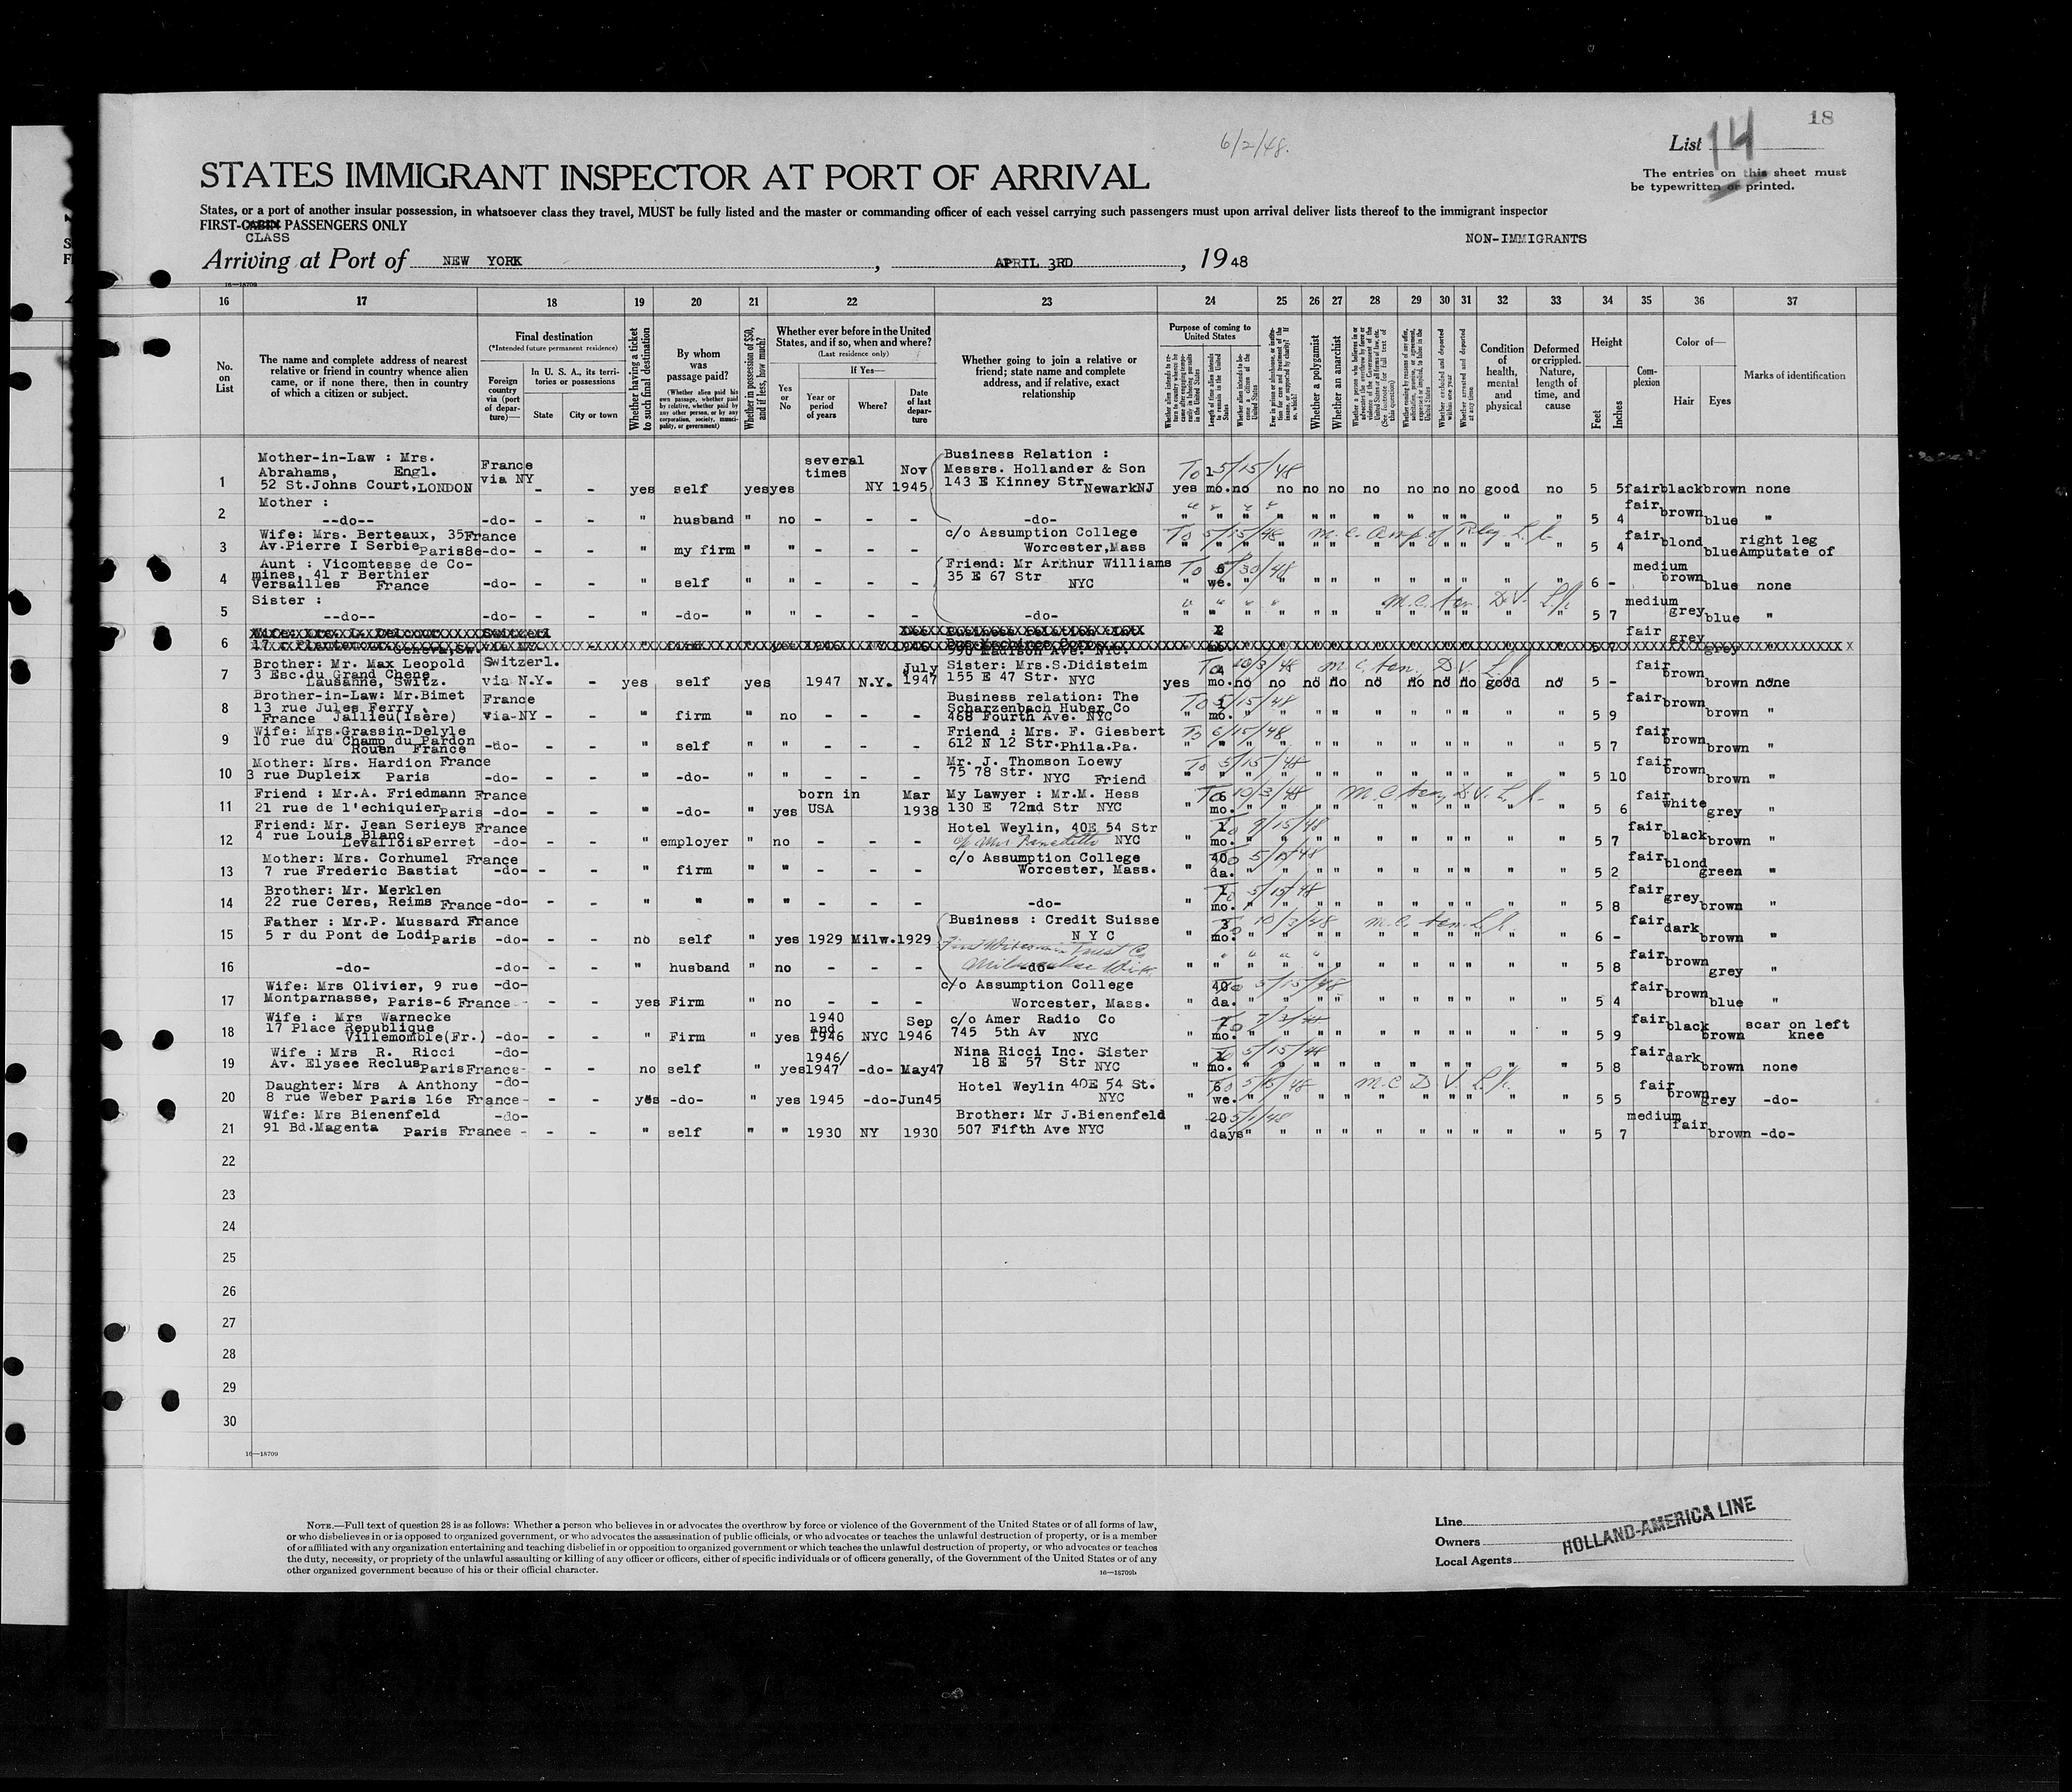 18
6/2/48.
List 14
STATES IMMIGRANT INSPECTOR AT PORT OF ARRIVAL
The entries on this sheet must
be typewritten or printed.
States, or a port of another insular possession, in whatsoever class they travel, MUST be fully listed and the master or commanding officer of each vessel carrying such passengers must upon arrival deliver lists thereof to the immigrant inspector
FIRST-CABIN PASSENGERS ONLY
CLASS
NON-IMMIGRANTS
Arriving at Port of NEW YORK, APRIL 3RD, 1948
16—18709
16 17 18 19 20 21 22 23 24 25 26 27 28 29 30 31 32 33 34 35 36 37
No. on List
The name and complete address of nearest relative or friend in country whence alien came, or if none there, then in country of which a citizen or subject.
Final destination
(*Intended future permanent residence)
Foreign country via (port of departure)—
In U. S. A., its territories or possessions
State
City or town
Whether having a ticket to such final destination
By whom was passage paid?
(Whether alien paid his own passage, whether paid by relative, whether paid by any other person, or by any corporation, society, municipality, or government)
Whether in possession of $50, and if less, how much?
Whether ever before in the United States, and if so, when and where?
(Last residence only)
Yes or No
If Yes—
Year or period of years
Where?
Date of last departure
Whether going to join a relative or friend; state name and complete address, and if relative, exact relationship
Purpose of coming to United States
Length of time alien intends to remain in the United States
Whether a polygamist
Whether an anarchist
Whether arrested and deported at any time
Condition of health, mental and physical
Deformed or crippled. Nature, length of time, and cause
Height
Feet
Inches
Complexion
Color of—
Hair
Eyes
Marks of identification
1 Mother-in-Law : Mrs. Abrahams, Engl. 52 St.Johns Court, LONDON France via NY - - yes self yes yes several times NY Nov 1945 Business Relation : Messrs. Hollander & Son 143 E Kinney Str Newark NJ To 5/15/48 yes 1 mo. no no no no no no no no good no 5 5 fair black brown none
2 Mother : --do-- -do- - - " husband " no - - - -do- " " " " " " " " " " " " 5 4 fair brown blue "
3 Wife: Mrs. Berteaux, 35 Av.Pierre I Serbie Paris 8e France -do- - - " my firm " " - - - c/o Assumption College Worcester, Mass To 5/15/48 " " " " " " " " " " " " 5 4 fair blond blue right leg Amputate of
4 Aunt : Vicomtesse de Comines, 41 r Berthier Versailles France -do- - - " self " " - - - Friend: Mr Arthur Williams 35 E 67 Str NYC To 5/30/48 " we. " " " " " " " " " " 6 - medium brown blue none
5 Sister : --do-- -do- - - " -do- " " - - - -do- " " " " " " " " " " " " 5 7 medium grey blue "
6
7 Brother: Mr. Max Leopold 3 Esc.du Grand Chene Lausanne, Switz. Switzerl. via N.Y. - - yes self yes 1947 N.Y. July 1947 Sister: Mrs.S.Didisteim 155 E 47 Str. NYC To 10/3/48 yes mo. no no no no no no no no good no 5 - fair brown brown none
8 Brother-in-Law: Mr.Bimet 13 rue Jules Ferry, France Jallieu(Isère) France via-NY - - " firm " no - - - Business relation: The Scharzenbach Huber Co 468 Fourth Ave. NYC To 5/15/48 " mo. " " " " " " " " " " 5 9 fair brown brown "
9 Wife: Mrs.Grassin-Delyle 10 rue du Champ du Pardon Rouen France -do- - - " self " " - - - Friend : Mrs. F. Giesbert 612 N 12 Str. Phila.Pa. To 6/15/48 " " " " " " " " " " " " 5 7 fair brown brown "
10 Mother: Mrs. Hardion France 3 rue Dupleix Paris -do- - - " -do- " " - - - Mr. J. Thomson Loewy 75 78 Str. NYC Friend To 5/15/48 " " " " " " " " " " " " 5 10 fair brown brown "
11 Friend : Mr.A. Friedmann France 21 rue de l'echiquier Paris -do- - - " -do- " yes born in USA Mar 1938 My Lawyer : Mr.M. Hess 130 E 72md Str NYC To 10/3/48 " 6 mo. " " " " " " " " " " 5 6 fair white grey "
12 Friend: Mr. Jean Serieys France 4 rue Louis Blanc LevalloisPerret -do- - - " employer " no - - - Hotel Weylin, 40E 54 Str NYC To 9/15/48 " mo. " " " " " " " " " " 5 7 fair black brown "
13 Mother: Mrs. Corhumel France 7 rue Frederic Bastiat -do- - - " firm " " - - - c/o Assumption College Worcester, Mass. 5/15/48 " 40 da. " " " " " " " " " " 5 2 fair blond green "
14 Brother: Mr. Merklen 22 rue Ceres, Reims France -do- - - " " " " - - - -do- 5/15/48 " mo. " " " " " " " " " " 5 8 fair grey brown "
15 Father : Mr.P. Mussard France 5 r du Pont de Lodi Paris -do- - - no self " yes 1929 Milw. 1929 Business : Credit Suisse N Y C First Wisconsin Trust Co To 10/3/48 " 3 mo. " " " " " " " " " " 6 - fair dark brown "
16 -do- -do- - - " husband " no - - - Milwaukee Wis. -do- " " " " " " " " " " " " 5 8 fair brown grey "
17 Wife: Mrs Olivier, 9 rue Montparnasse, Paris-6 France -do- - - yes Firm " no - - - c/o Assumption College Worcester, Mass. To 5/15/48 " 40 da. " " " " " " " " " " 5 4 fair brown blue "
18 Wife : Mrs Warnecke 17 Place Republique Villemomble(Fr.) -do- - - " Firm " yes 1940 and 1946 NYC Sep 1946 c/o Amer Radio Co 745 5th Av NYC " mo. " " " " " " " " " " 5 9 fair black brown scar on left knee
19 Wife : Mrs R. Ricci Av. Elysee Reclus Paris France -do- - - no self " yes 1946/1947 -do- May47 Nina Ricci Inc. Sister 18 E 57 Str NYC 5/15/48 " mo. " " " " " " " " " " 5 8 fair dark brown none
20 Daughter: Mrs A Anthony 8 rue Weber Paris 16e France -do- - - yes -do- " yes 1945 -do- Jun45 Hotel Weylin 40E 54 St. NYC " 6 we. " " " " " " " " " " 5 5 fair brown grey -do-
21 Wife: Mrs Bienenfeld 91 Bd.Magenta Paris France -do- - - " self " " 1930 NY 1930 Brother: Mr J.Bienenfeld 507 Fifth Ave NYC 5/1/48 " 20 days " " " " " " " " " " 5 7 medium fair brown -do-
22
23
24
25
26
27
28
29
30
16—18709
NOTE.—Full text of question 28 is as follows: Whether a person who believes in or advocates the overthrow by force or violence of the Government of the United States or of all forms of law,
or who disbelieves in or is opposed to organized government, or who advocates the assassination of public officials, or who advocates or teaches the unlawful destruction of property, or is a member
of or affiliated with any organization entertaining and teaching disbelief in or opposition to organized government or which teaches the unlawful destruction of property, or who advocates or teaches
the duty, necessity, or propriety of the unlawful assaulting or killing of any officer or officers, either of specific individuals or of officers generally, of the Government of the United States or of any
other organized government because of his or their official character.
16—18709b
Line
Owners HOLLAND-AMERICA LINE
Local Agents